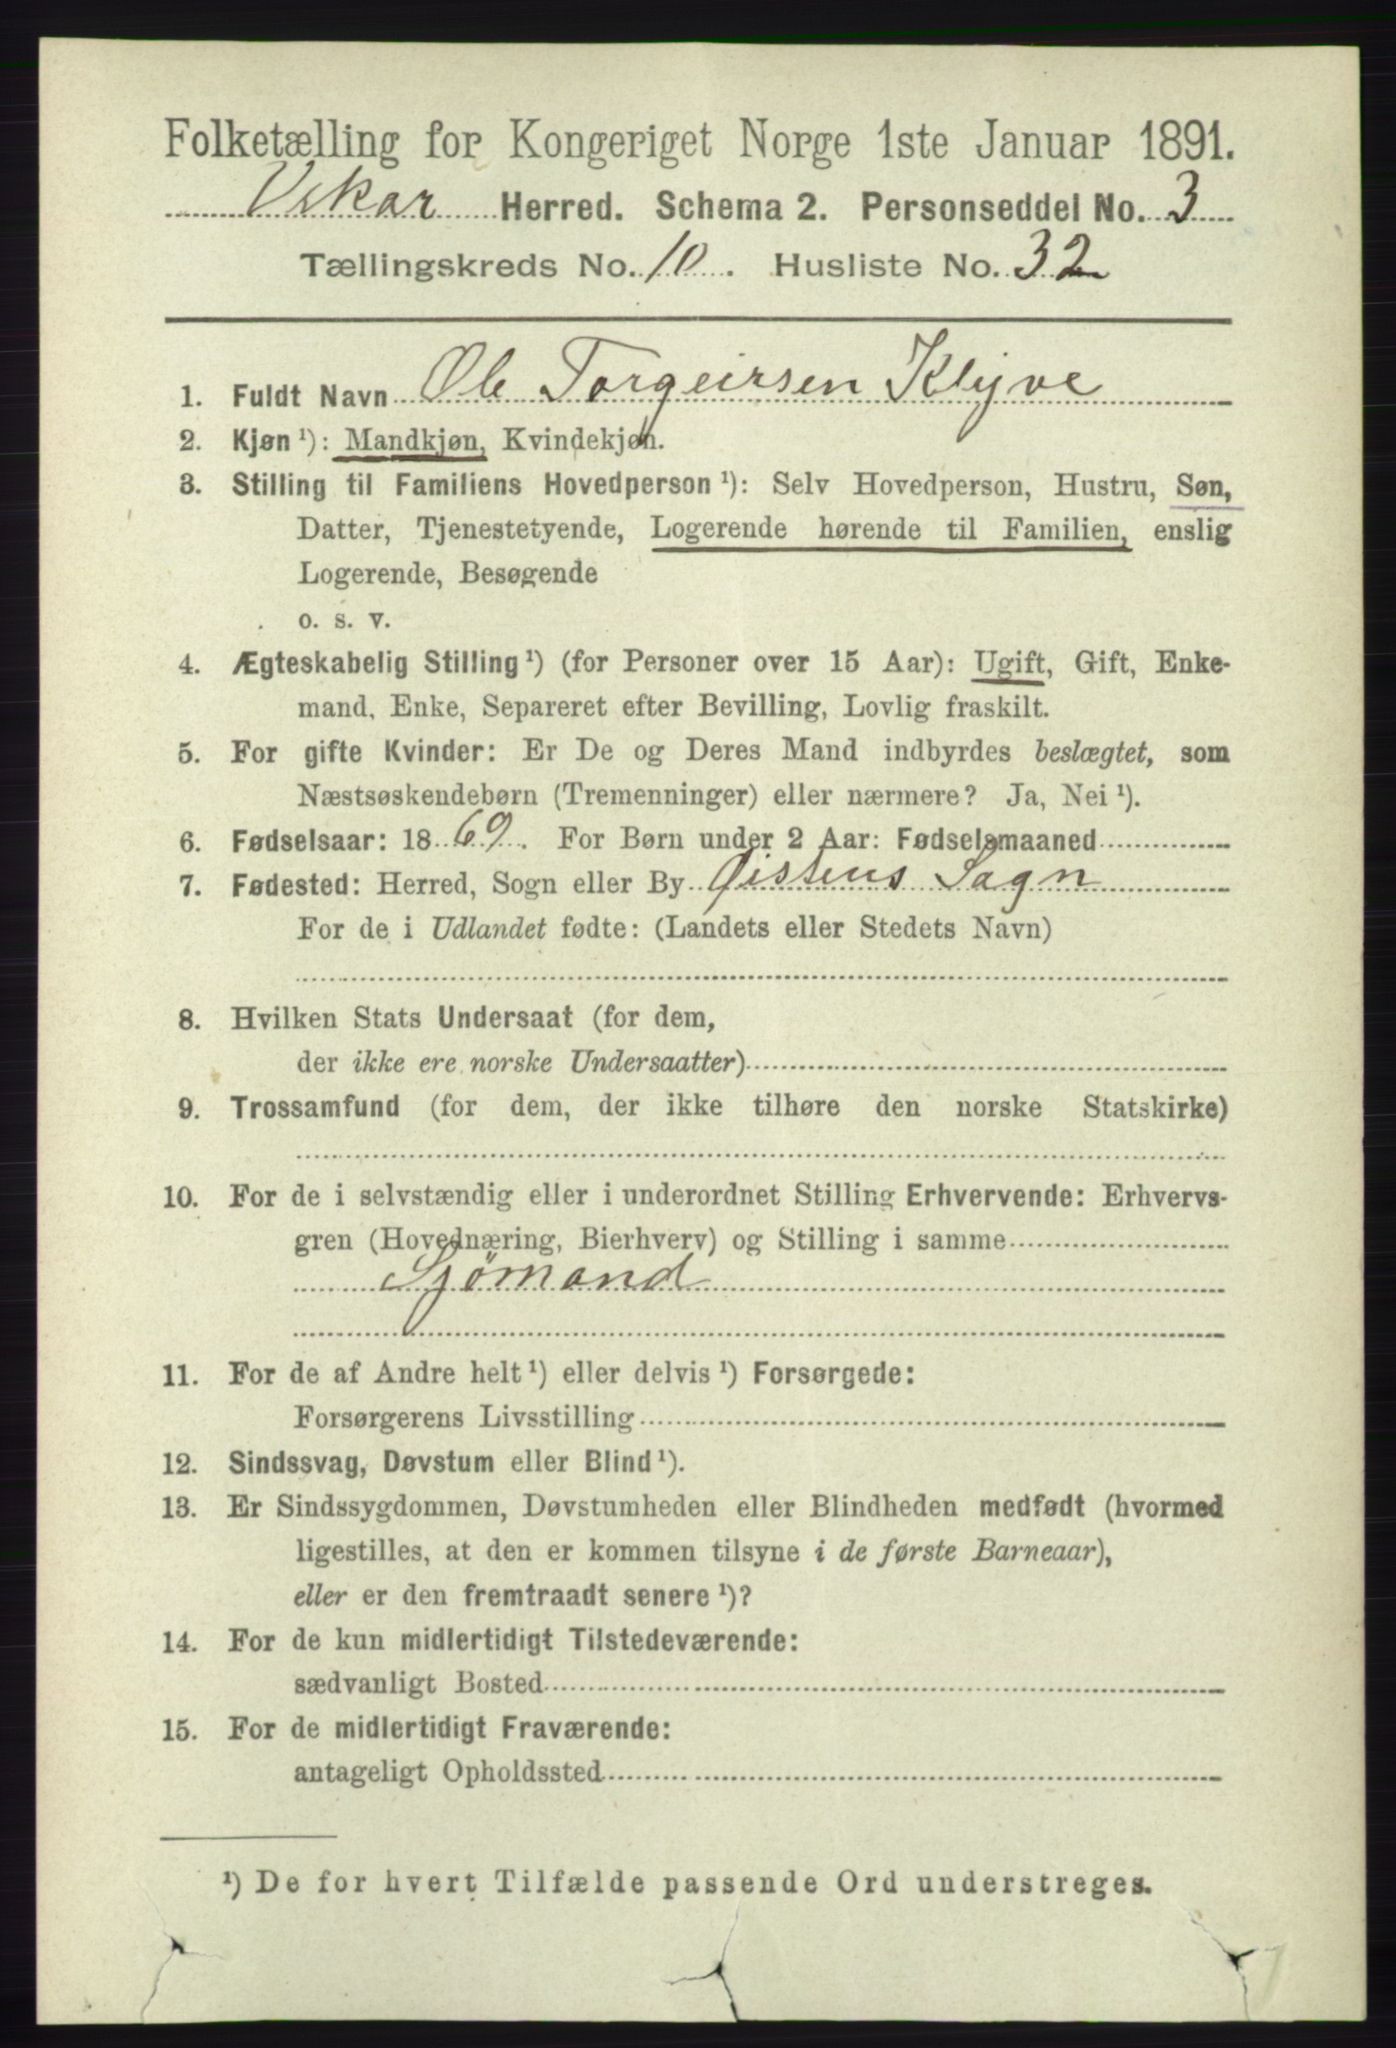 Folketælling for Kongeriget Norge 1ste Januar 1891.
Vikør Herred. Schema 2. Personseddel No. 3
Tællingskreds No. 10. Husliste No. 32
1. Fuldt Navn Ole Torgeirsen Klyve
2. Kjøn ¹): Mandkjøn, Kvindekjøn.
3. Stilling til Familiens Hovedperson ¹): Selv Hovedperson, Hustru, Søn,
Datter, Tjenestetyende, Logerende hørende til Familien, enslig
Logerende, Besøgende
o. s. v.
4. Ægteskabelig Stilling ¹) (for Personer over 15 Aar): Ugift, Gift, Enke-
mand, Enke, Separeret efter Bevilling, Lovlig fraskilt.
5. For gifte Kvinder: Er De og Deres Mand indbyrdes beslægtet, som
Næstsøskendebørn (Tremenninger) eller nærmere? Ja, Nei ¹).
6. Fødselsaar: 1869. For Børn under 2 Aar: Fødselsmaaned
7. Fødested: Herred, Sogn eller By Øistens Sogn
For de i Udlandet fødte: (Landets eller Stedets Navn)
8. Hvilken Stats Undersaat (for dem,
der ikke ere norske Undersaatter)
9. Trossamfund (for dem, der ikke tilhøre den norske Statskirke)
10. For de i selvstændig eller i underordnet Stilling Erhvervende: Erhvervs-
gren (Hovednæring, Bierhverv) og Stilling i samme
Sjømand
11. For de af Andre helt ¹) eller delvis ¹) Forsørgede:
Forsørgerens Livsstilling
12. Sindssvag, Døvstum eller Blind ¹).
13. Er Sindssygdommen, Døvstumheden eller Blindheden medfødt (hvormed
ligestilles, at den er kommen tilsyne i de første Barneaar),
eller er den fremtraadt senere ¹)?
14. For de kun midlertidigt Tilstedeværende:
sædvanligt Bosted
15. For de midlertidigt Fraværende:
antageligt Opholdssted
¹) De for hvert Tilfælde passende Ord understreges.